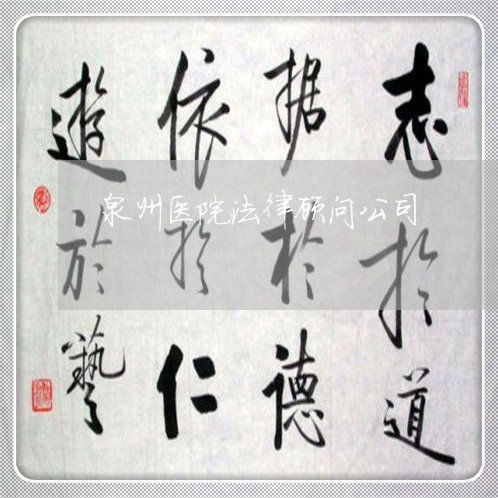 志於道
据於德
依於仁
遊於藝
泉州医院法律顾问公司